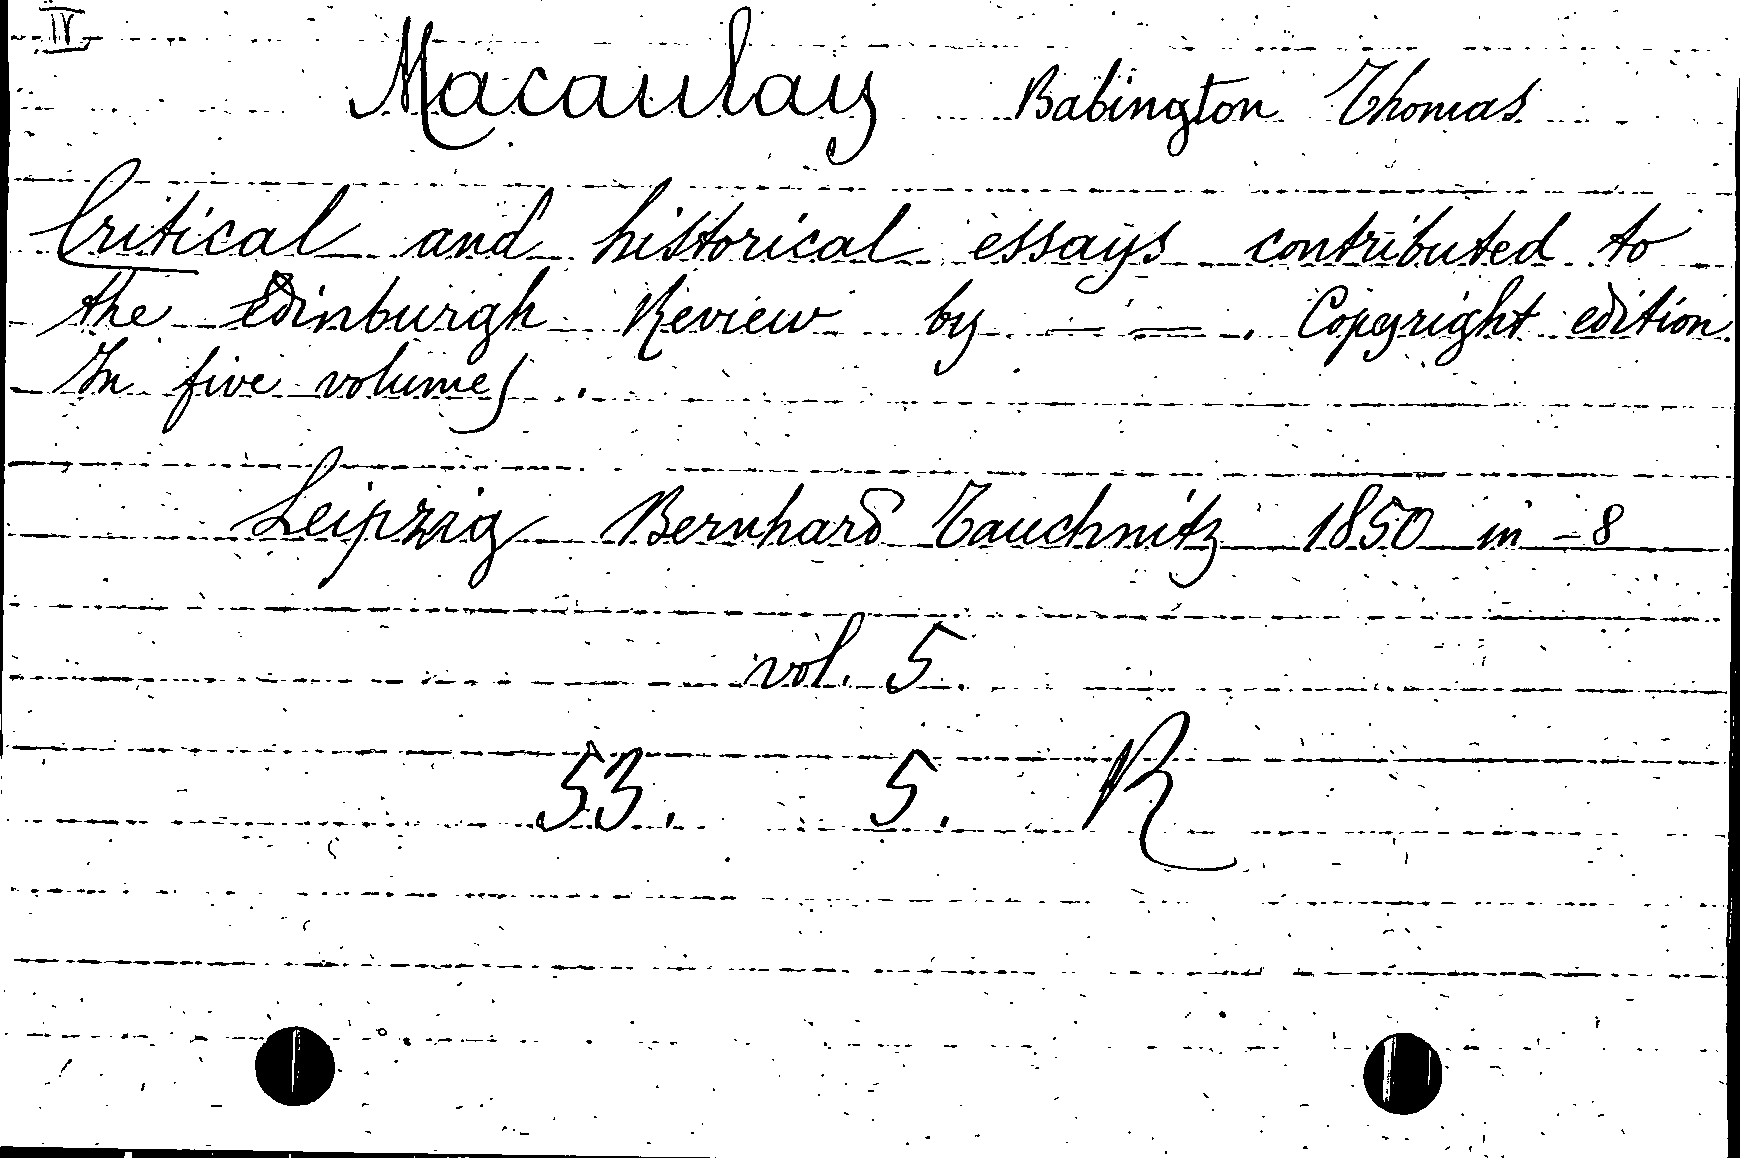 IV
Macaulay Babington Thomas
Critical and historical essays contributed to
the Edinburgh Review by — — . Copyright edition.
In five volumes .
Leipzig Bernhard Tauchnitz 1850 in -8
vol. 5.
53. 5. R